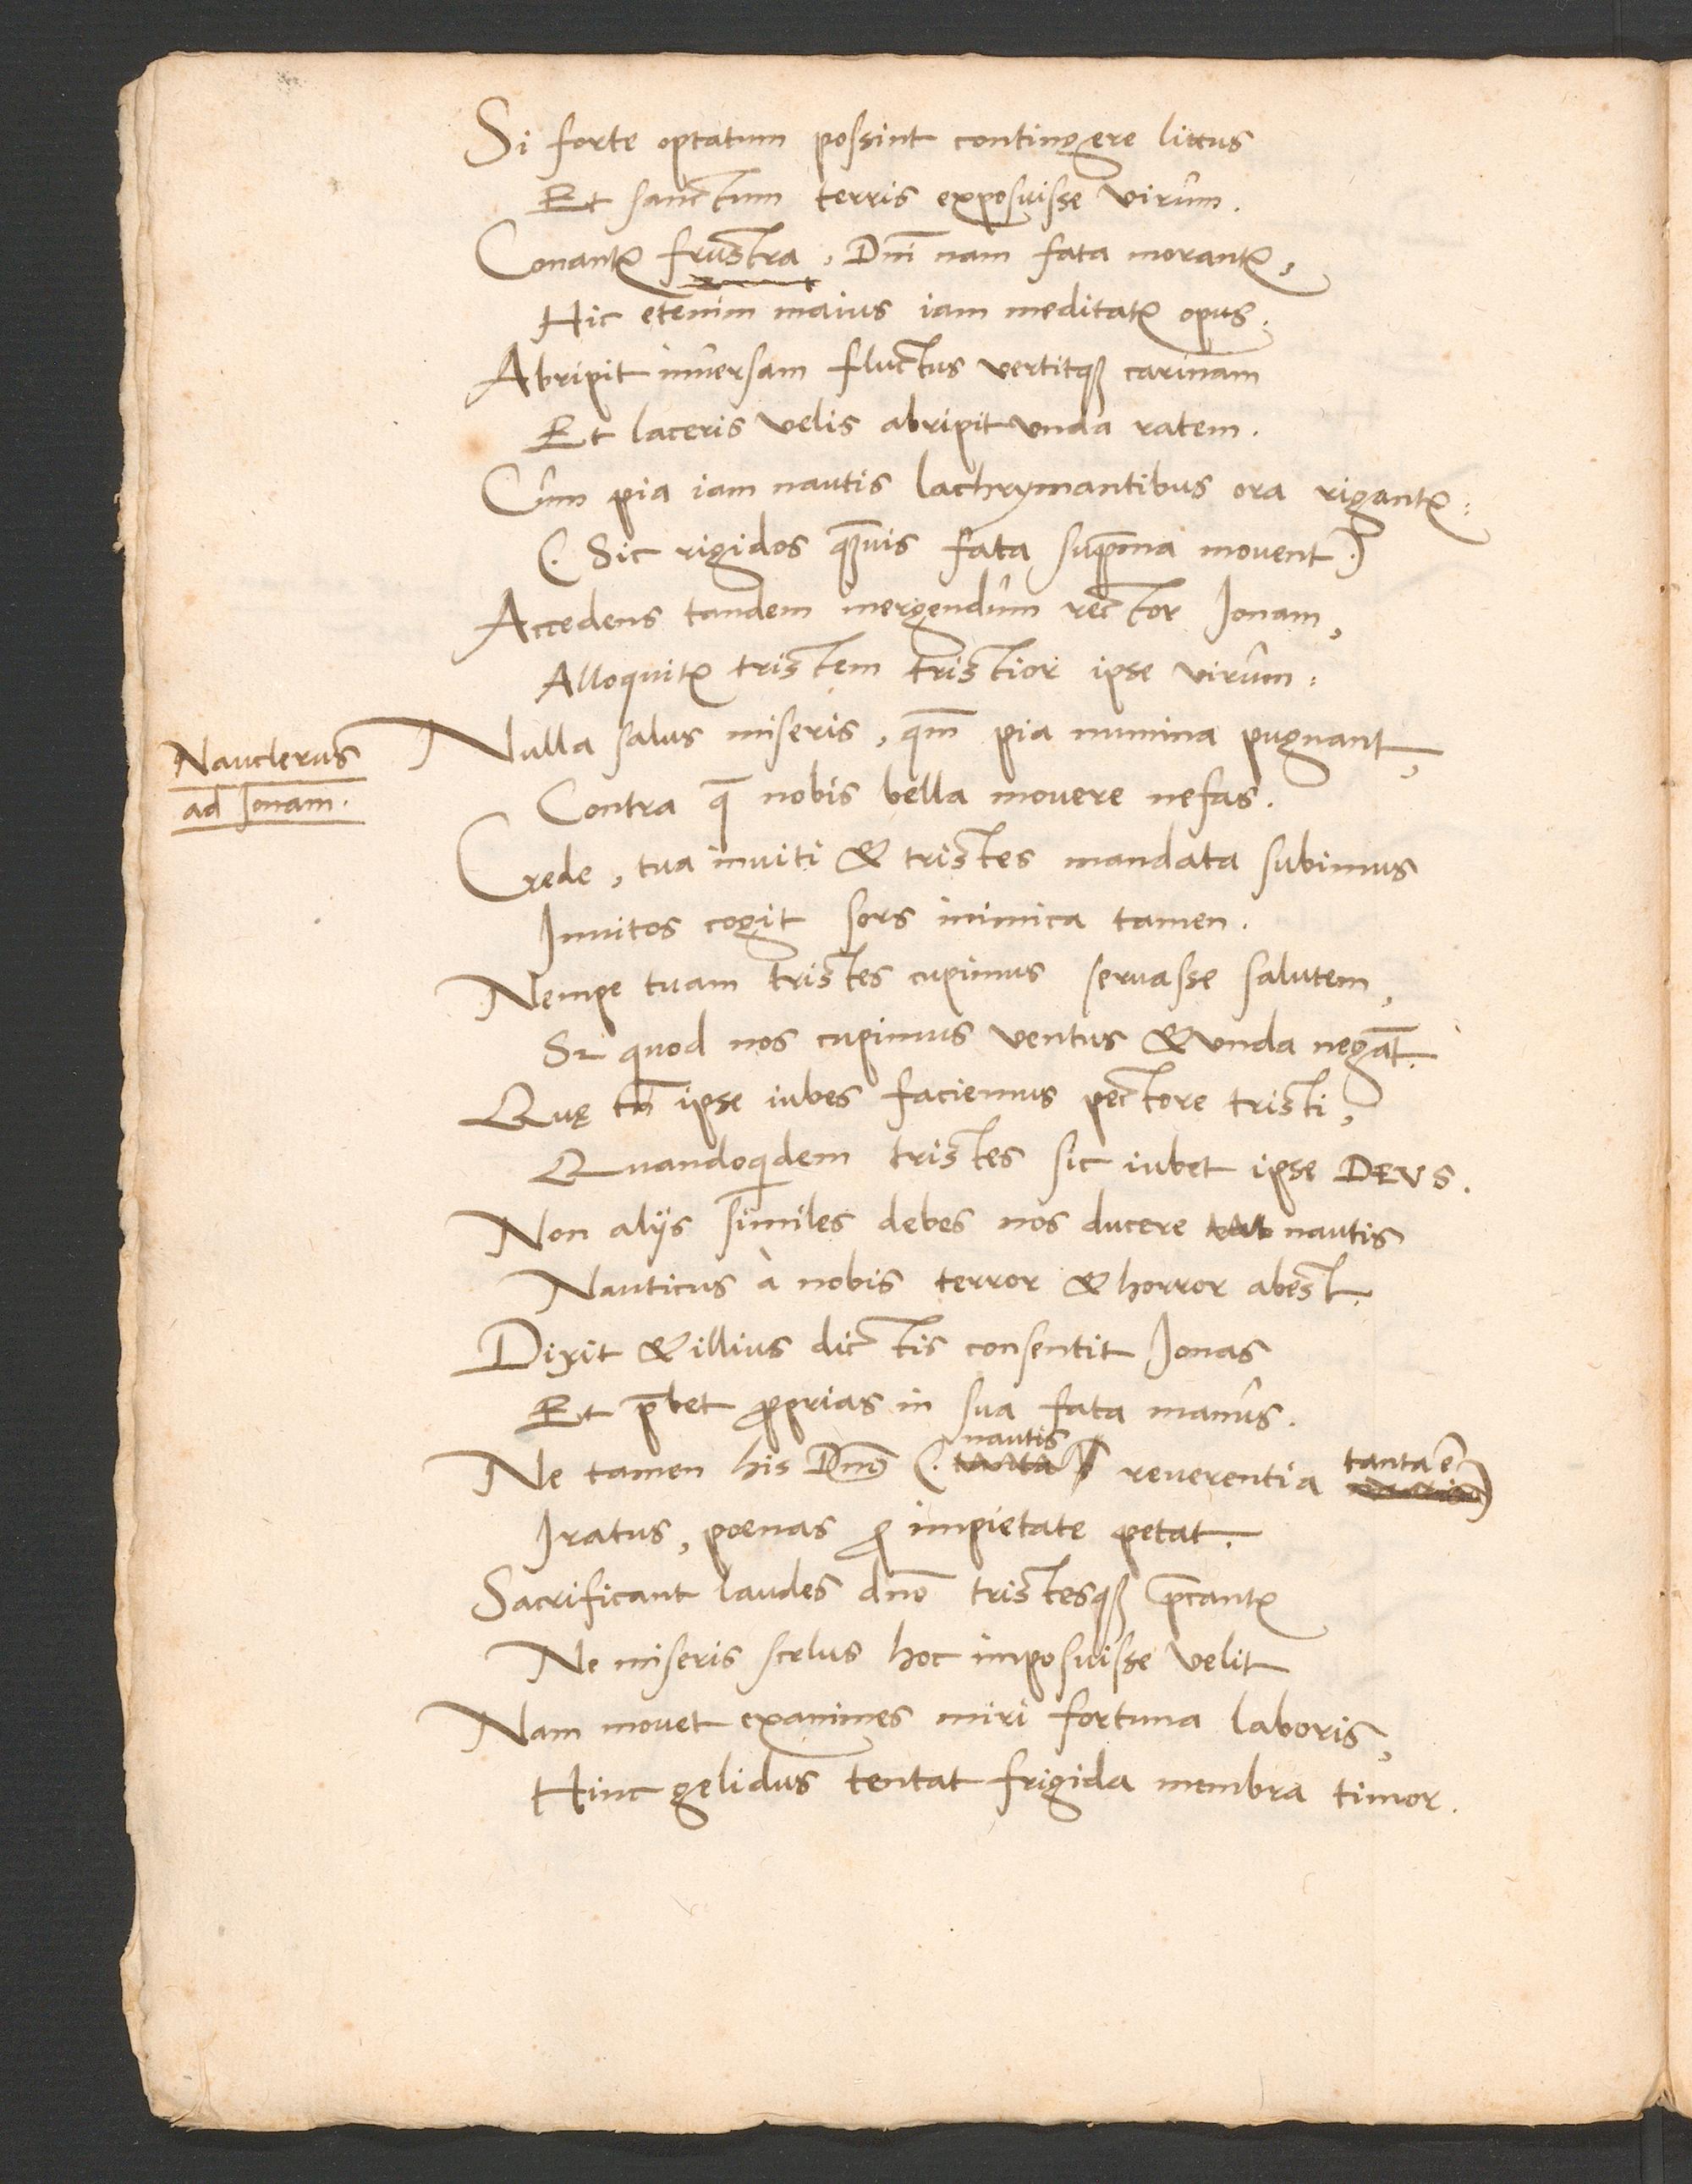 Si forte optatum possint contingere littus
Et sanctum terris exposuisse virum.
Conantr frustra, Dni nam fata morantr,
Hic etenim maius iam meditatr opus.
Abripit inuersam fluctus vertitqȝ carinam
Et laceris velis abripit vnda ratem.
Cum pia iam nautis lachrymantibus ora rigantr:
(. Sic rigidos qȝuis fata supma mouent .)
Accedens tandem mergendum rector Jonam,
Alloquitr tristem tristior ipse virum:
Nauclerus
ad Jonam.
Nulla salus miseris, qm̅ pia numina pugnant,
Contra q̅ nobis bella mouere nefas.
Crede, tua inuiti & tristes mandata subimus
Inuitos cogit sors inimica tamen.
Nempe tuam tristes cupimus seruasse salutem,
Sz quod nos cupimus ventus & vnda nega̅t.
Quę tn̅ ipse iubes faciemus pectore tristi,
Quandoqdem tristes sic iubet ipse DEVS.
Non alijs similes debes nos ducere nautis
Nauticus à nobis terror & horror abest.
Dixit & illius dictis consentit Jonas
Et p̅bet ꝓprias in sua fata manus.
Ne tamen his Dn̅s (. tanta nautis reuerentia tanta e̅)
Iratus, poenas ꝓ impietate petat.
Sacrificant laudes dn̅o tristesqȝ p̅cantr
Ne miseris scelus hoc imposuisse velit
Nam mouet exanimes miri fortuna laboris,
Hinc gelidus tentat frigida membra timor.